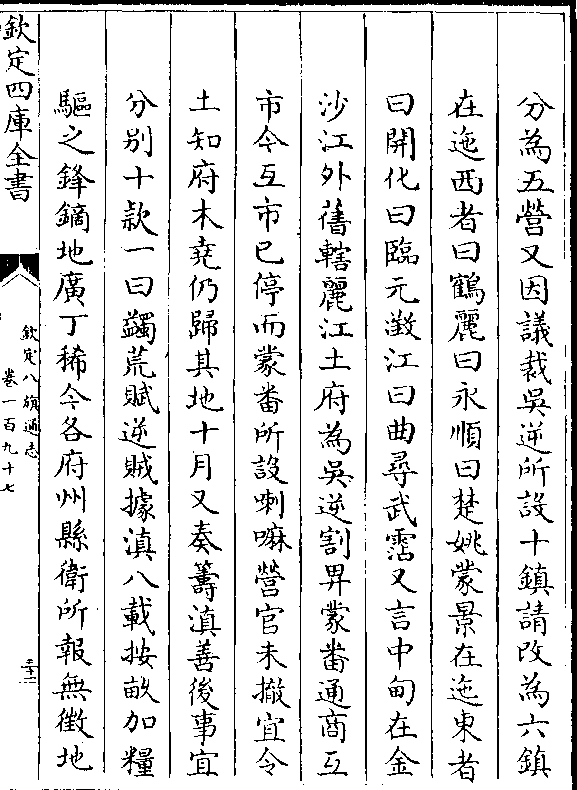 分為五營又因議裁吳逆所設十鎮請改為六鎮
在迤西者曰鶴麗曰永順曰楚姚蒙景在迤東者
曰開化曰臨元澂江曰曲尋武霑又言中甸在金
沙江外舊轄麗江土府為吳逆割畀蒙番通商互
市今互市已停而蒙番所設喇嘛營官未撤宜令
土知府木堯仍歸其地十月又奏籌滇善後事宜
分别十款一曰蠲荒賦逆賊據滇八載按畝加糧
驅之鋒鏑地廣丁稀今各府州縣衛所報無徵地
欽定四庫全書
欽定八旗通志
卷一百九十七
三十二